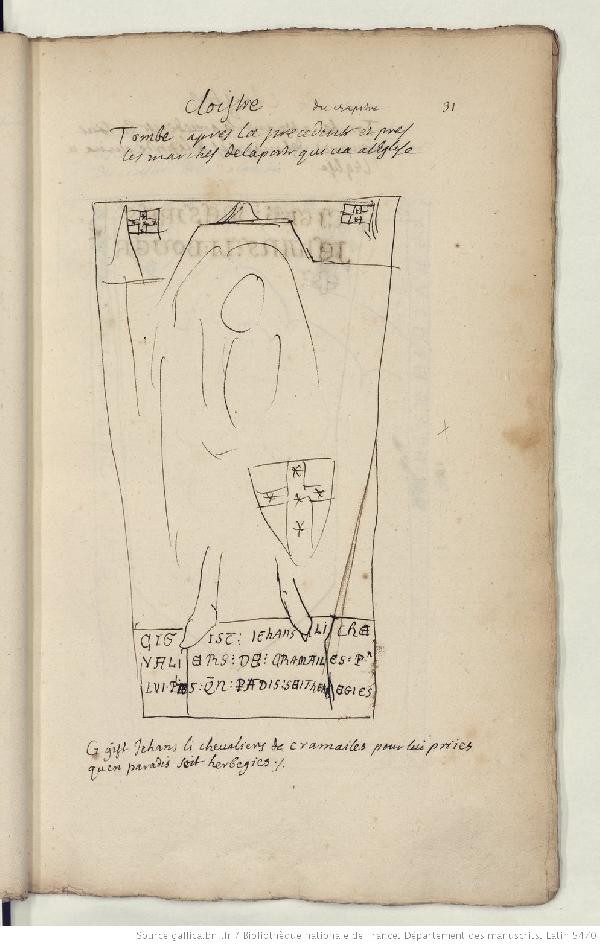 Cloistre du chapitre 31
Tombe apres la precedente et pres
les marches de la porte qui va a leglise
CIGIST: IEHANS LI CHE
VALIERS: DE: CRAMAILES: Pr
LVI PES: QN: PADIS: SEIT HERBEGIES
Cy gist Jehans li chevaliers de cramailes pour lui priies
quen paradis soit herbegies ./.
Source gallica.bnf.fr / Bibliothèque nationale de France. Département des manuscrits. Latin 5470